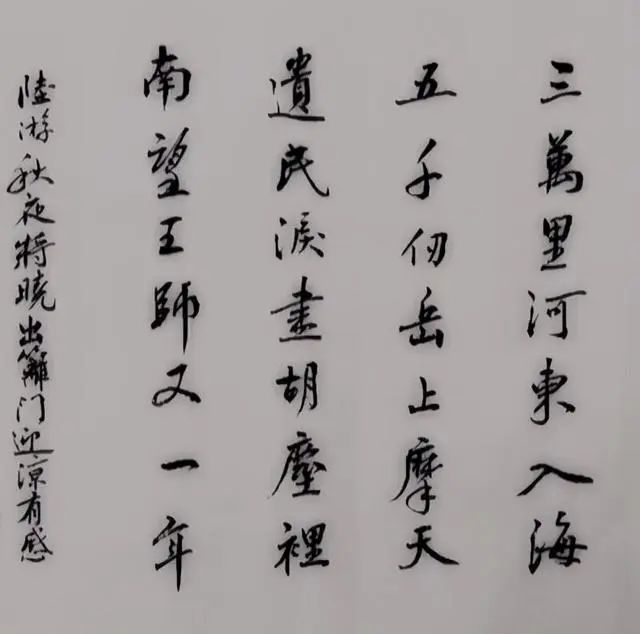 三萬里河東入海
五千仞岳上摩天
遺民淚盡胡塵裡
南望王師又一年
陸游秋夜將曉出籬门迎涼有感